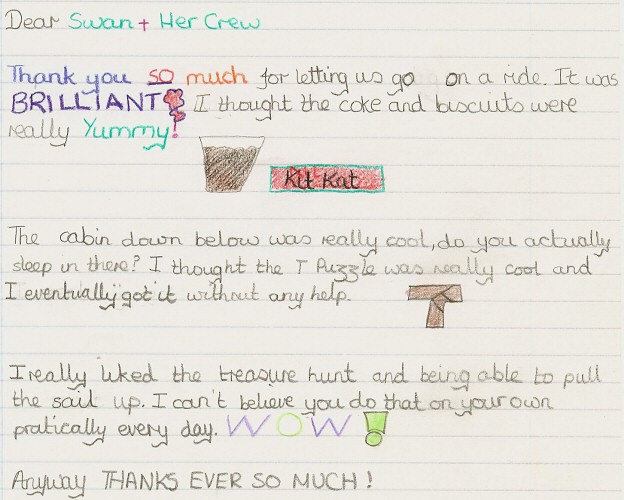 Dear Swan + Her Crew
Thank you so much for letting us go on a ride. It was
BRILLIANT! I thought the coke and biscuits were
really Yummy!
Kit Kat
The cabin down below was really cool, do you actually
sleep in there? I thought the T Puzzle was really cool and
I eventually got it without any help.
I really liked the treasure hunt and being able to pull
the sail up. I can't believe you do that on your own
pratically every day. WOW!
Anyway THANKS EVER SO MUCH!